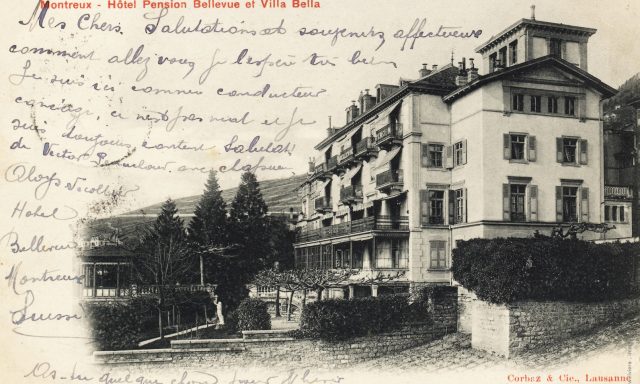 Montreux - Hôtel Pension Bellevue et Villa Bella
Mes Chers. Salutations et souvenirs affectueux
comment allez vous, je l'espère très bien
Je suis ici comme conducteur
concierge, ce n'est pas mal et je
suis toujours content salutat
de Victor
Aloys
Hotel
Bellevue
Montreux
Suisse
As-tu quelque chose pour
Corbaz & Cie., Lausanne